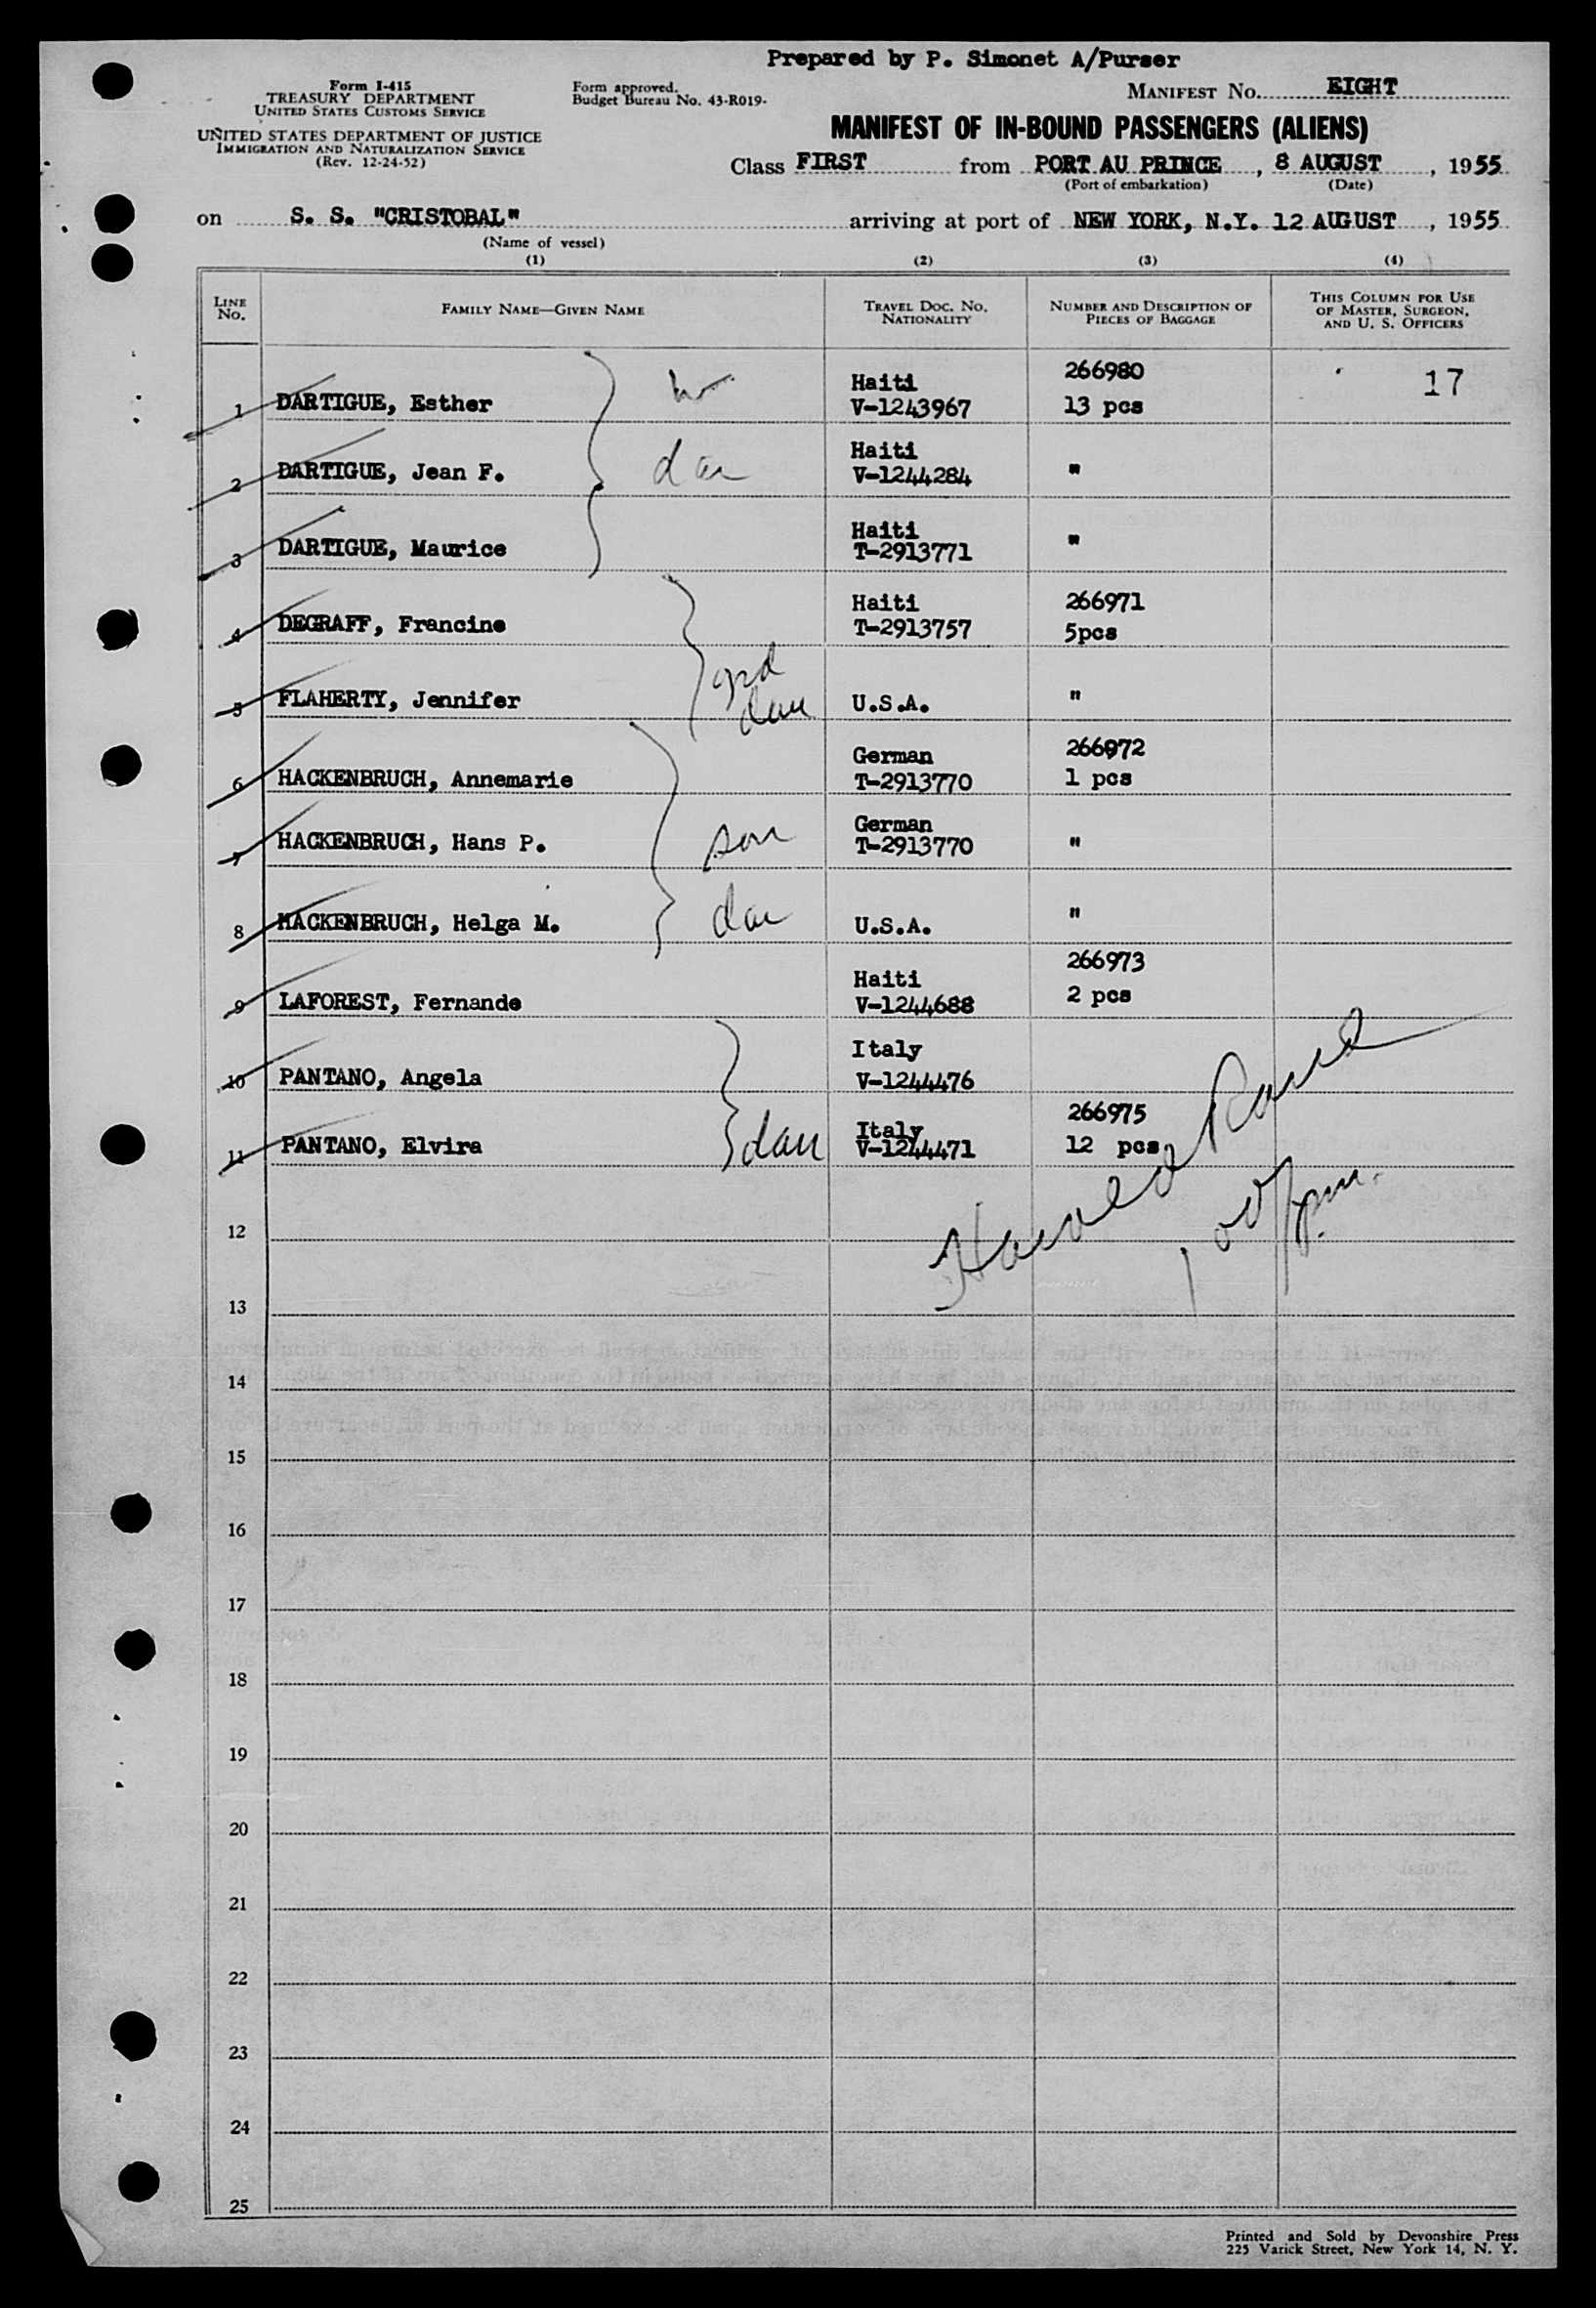 Prepared by P. Simonet A/Purser
Form I-415
TREASURY DEPARTMENT
UNITED STATES CUSTOMS SERVICE
UNITED STATES DEPARTMENT OF JUSTICE
IMMIGRATION AND NATURALIZATION SERVICE
(Rev. 12-24-52)
Form approved.
Budget Bureau No. 43-R019-
MANIFEST NO. EIGHT
MANIFEST OF IN-BOUND PASSENGERS (ALIENS)
Class FIRST from PORT AU PRINCE, 8 AUGUST, 1955
(Port of embarkation) (Date)
on S. S. "CRISTOBAL" arriving at port of NEW YORK, N.Y. 12 AUGUST, 1955
(Name of vessel)
(1) (2) (3) (4)
LINE NO. FAMILY NAME—GIVEN NAME TRAVEL DOC. NO. NATIONALITY NUMBER AND DESCRIPTION OF PIECES OF BAGGAGE THIS COLUMN FOR USE OF MASTER, SURGEON, AND U. S. OFFICERS
Haiti 266980 17
1 DARTIGUE, Esther w V-1243967 13 pcs
Haiti
2 DARTIGUE, Jean F. dau V-1244284 "
Haiti
3 DARTIGUE, Maurice T-2913771 "
Haiti 266971
4 DEGRAFF, Francine T-2913757 5pcs
5 FLAHERTY, Jennifer grd dau U.S.A. "
German 266972
6 HACKENBRUCH, Annemarie T-2913770 1 pcs
German
7 HACKENBRUCH, Hans P. son T-2913770 "
8 HACKENBRUCH, Helga M. dau U.S.A. "
Haiti 266973
9 LAFOREST, Fernande V-1244688 2 pcs
Italy
10 PANTANO, Angela V-1244476
Italy 266975
11 PANTANO, Elvira dau V-1244471 12 pcs
Harold
1 00/pm.
12
13
14
15
16
17
18
19
20
21
22
23
24
25
Printed and Sold by Devonshire Press
225 Varick Street, New York 14, N. Y.